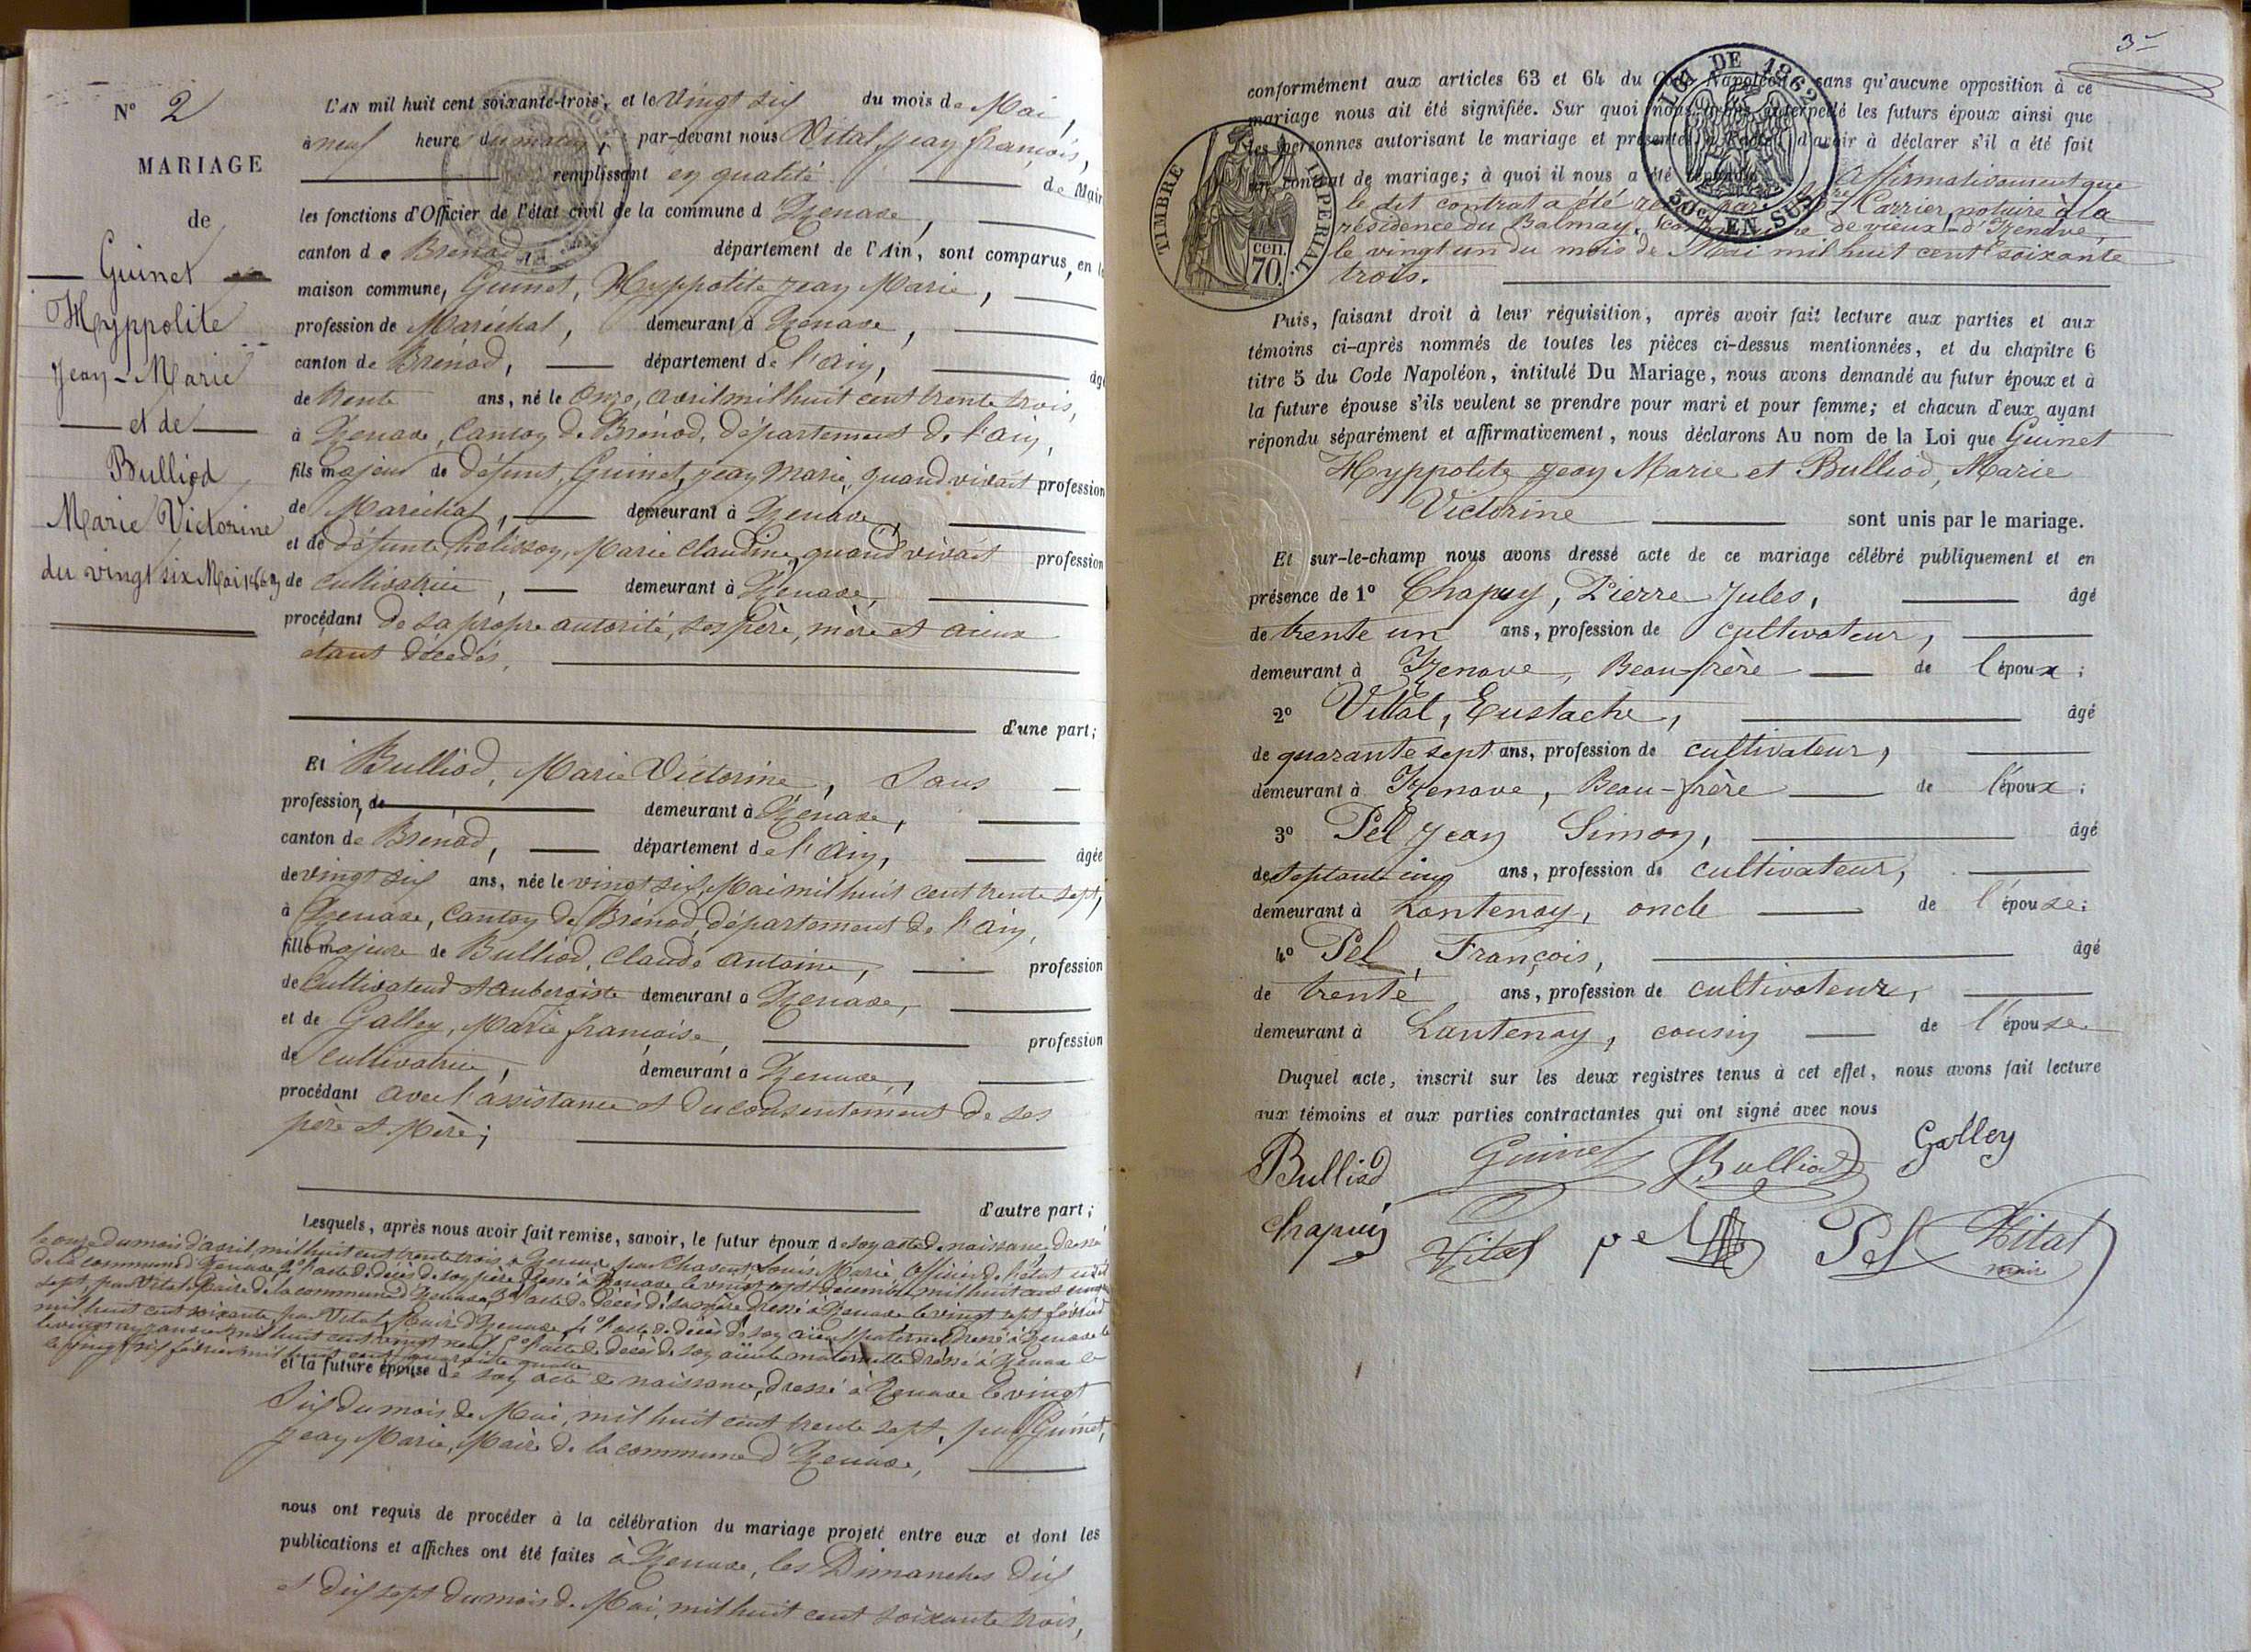 N° 2
MARIAGE
de
Guinet
Hyppolite
Jean-Marie
et de
Bulliod
Marie Victorine
du vingt six Mai 1863
L'AN mil huit cent soixante-trois, et le vingt six du mois de Mai,
à neuf heure du matin, par-devant nous Vital Jean françois,
remplissant en qualité de Maire
les fonctions d'Officier de l'état civil de la commune d Izenave,
canton de Brénod département de l'Ain, sont comparus, en la
maison commune, Guinet, Hyppolite Jean Marie,
profession de Maréchal, demeurant à Izenave,
canton de Brénod, département de l'ain, âgé
de trente ans, né le onze, avril mil huit cent trente trois,
à Izenave, Canton de Brénod, département de l'ain,
fils majeur de défunt, Guinet, Jean Marie, quand vivait profession
de Maréchal, demeurant à Izenave
et de défunte Pélisson, Marie Claudine, quand vivait profession
de cultivatrice, demeurant à Izenave,
procédant de sa propre autorité, ses père, mère et aieux
étant décédés.
d'une part;
Et Bulliod, Marie Victorine, Sans
profession de demeurant à Izenave,
canton de Brénod, département de l'Ain, âgée
de vingt six ans, née le vingt six Mai mil huit cent trente sept,
à Izenave, Canton de Brénod, département de l'ain,
fille majeure de Bulliod, Claude antoine, profession
de Cultivateur et aubergiste demeurant à Izenave,
et de Galley, Marie françoise, profession
de cultivatrice, demeurant à Izenave,
procédant avec l'assistance et du consentement de ses
père et Mère;
d'autre part;
Lesquels, après nous avoir fait remise, savoir, le futur époux de son acte de naissance, dressé
le onze du mois d'avril, mil huit cent trente trois, à Izenave par Louis Marie, Officier de l'état civil
de la commune d'Izenave, 2° l'acte de décès de son père dressé à Izenave le vingt sept décembre mil huit cent cinquante
sept par Vital Maire de la commune d'Izenave, 3° l'acte de décès de sa mère dressé à Izenave le vingt sept février
mil huit cent soixante par Vital, Maire d'Izenave, 4° l'acte de décès de son aieul paternel dressé à Izenave le
mil huit cent vingt neuf, 5° l'acte de décès de son aieule maternelle dressé à Izenave le
le vingt six février mil huit cent quarante quatre
et la future épouse de son acte de naissance, dressé à Izenave le vingt
Six du mois de Mai, mil huit cent trente sept, par Guinet,
Jean Marie, Maire de la commune d'Izenave,
nous ont requis de procéder à la célébration du mariage projeté entre eux et dont les
publications et affiches ont été faites à Izenave, les Dimanches dix
et dix sept du mois de Mai, mil huit cent soixante trois,
3
conformément aux articles 63 et 64 du Code Napoléon, sans qu'aucune opposition à ce
mariage nous ait été signifiée. Sur quoi nous avons interpellé les futurs époux ainsi que
les personnes autorisant le mariage et présentes à l'acte, d'avoir à déclarer s'il a été fait
un contrat de mariage; à quoi il nous a été répondu Affirmativement que
le dit contrat a été reçu par Carrier, notaire à la
résidence du Balmay, commune de vieux-d'Izenave,
le vingt un du mois de Mai mil huit cent soixante
trois.
LOI DE 1862
50c. EN SUS
TIMBRE IMPERIAL
cen. 70.
Puis, faisant droit à leur réquisition, après avoir fait lecture aux parties et aux
témoins ci-après nommés de toutes les pièces ci-dessus mentionnées, et du chapitre 6
titre 5 du Code Napoléon, intitulé Du Mariage, nous avons demandé au futur époux et à
la future épouse s'ils veulent se prendre pour mari et pour femme; et chacun d'eux ayant
répondu séparément et affirmativement, nous déclarons Au nom de la Loi que Guinet
Hyppolite Jean Marie et Bulliod, Marie
Victorine sont unis par le mariage.
Et sur-le-champ nous avons dressé acte de ce mariage célébré publiquement et en
présence de 1° Chapuy, Pierre Jules, âgé
de trente un ans, profession de cultivateur,
demeurant à Izenave, Beau-frère de l'époux;
2° Vital, Eustache, âgé
de quarante sept ans, profession de cultivateur,
demeurant à Izenave, Beau-frère de l'époux;
3° Pel Jean Simon, âgé
de septante cinq ans, profession de cultivateur,
demeurant à Lantenay, oncle de l'épouse;
4° Pel, François, âgé
de trente ans, profession de cultivateur,
demeurant à Lantenay, cousin de l'épouse
Duquel acte, inscrit sur les deux registres tenus à cet effet, nous avons fait lecture
aux témoins et aux parties contractantes qui ont signé avec nous
Bulliod Guinet Bulliod Galley
Chapuis Vital pel Pel Vital
maire